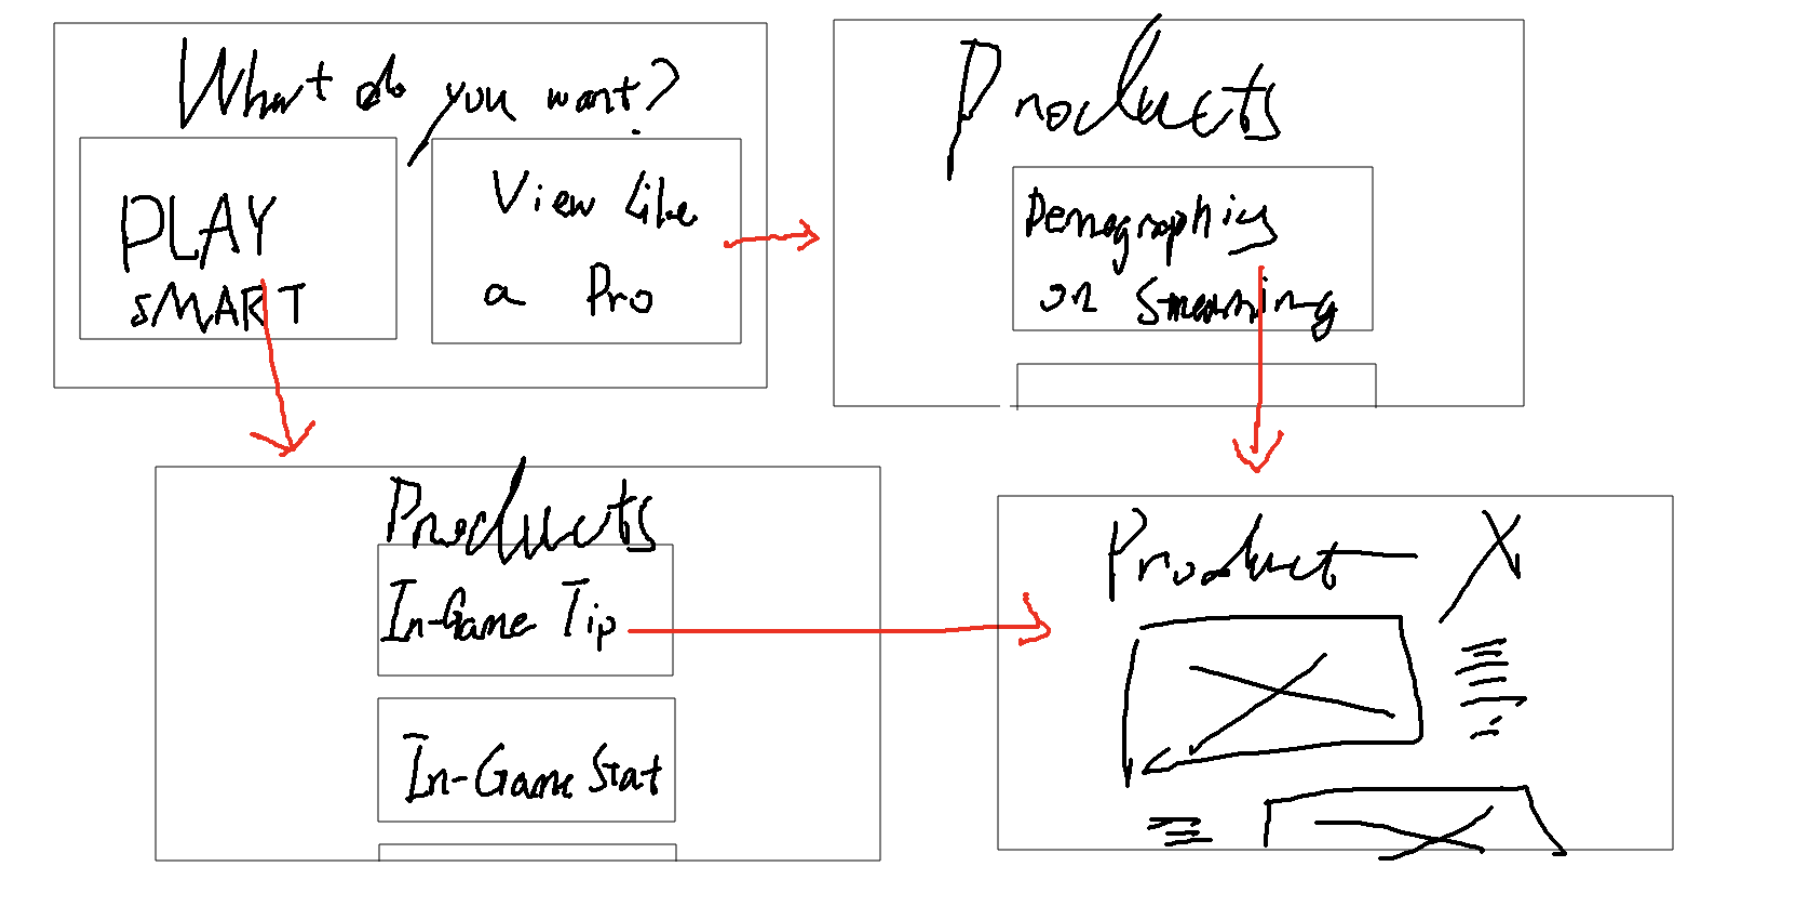 What do you want?
PLAY
SMART
View like
a Pro
Products
Demographics
on Streaming
Products
In-Game Tip
In-Game Stat
Product X